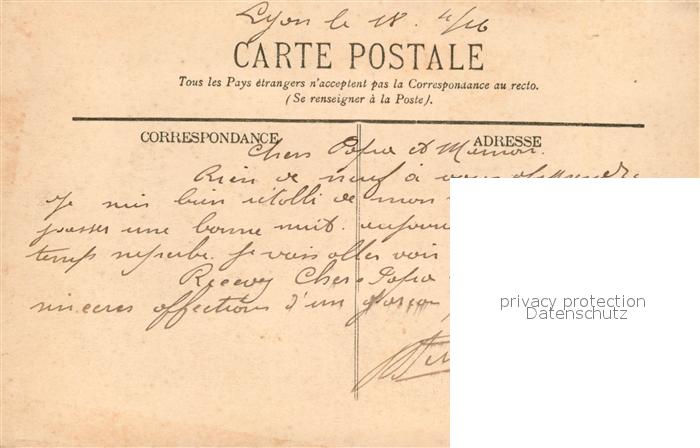 Lyon le 18. 4/16
CARTE POSTALE
Tous les Pays étrangers n'acceptent pas la Correspondance au recto.
(Se renseigner à la Poste).
CORRESPONDANCE
ADRESSE
Chers Papa et Maman.
Rien de neuf à vous apprendre
Je suis bien rétabli de mon
passer une bonne nuit.
temps superbe. Je vais aller voir
Recevez Chers Papa
sinceres affections d'un garçon
privacy protection
Datenschutz